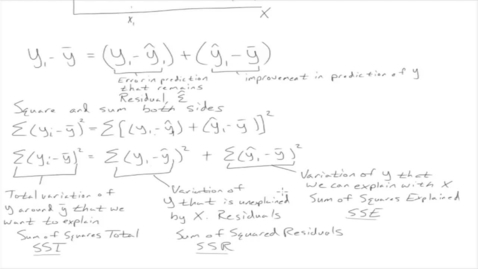 x₁ X
y₁ - ȳ = (y₁ - ŷ₁) + (ŷ₁ - ȳ)
Error in prediction that remains Residual, ε̂
improvement in prediction of y
Square and sum both sides
Σ(yᵢ - ȳ)² = Σ[(y₁ - ŷ₁) + (ŷ₁ - ȳ)]²
Σ(yᵢ - ȳ)² = Σ(y₁ - ŷ₁)² + Σ(ŷ₁ - ȳ)²
Total variation of
y around ȳ that we
want to explain
Sum of Squares Total
SST
Variation of
y that is unexplained
by X. Residuals
Sum of Squared Residuals
SSR
Variation of y that
we can explain with X
Sum of Squares Explained
SSE